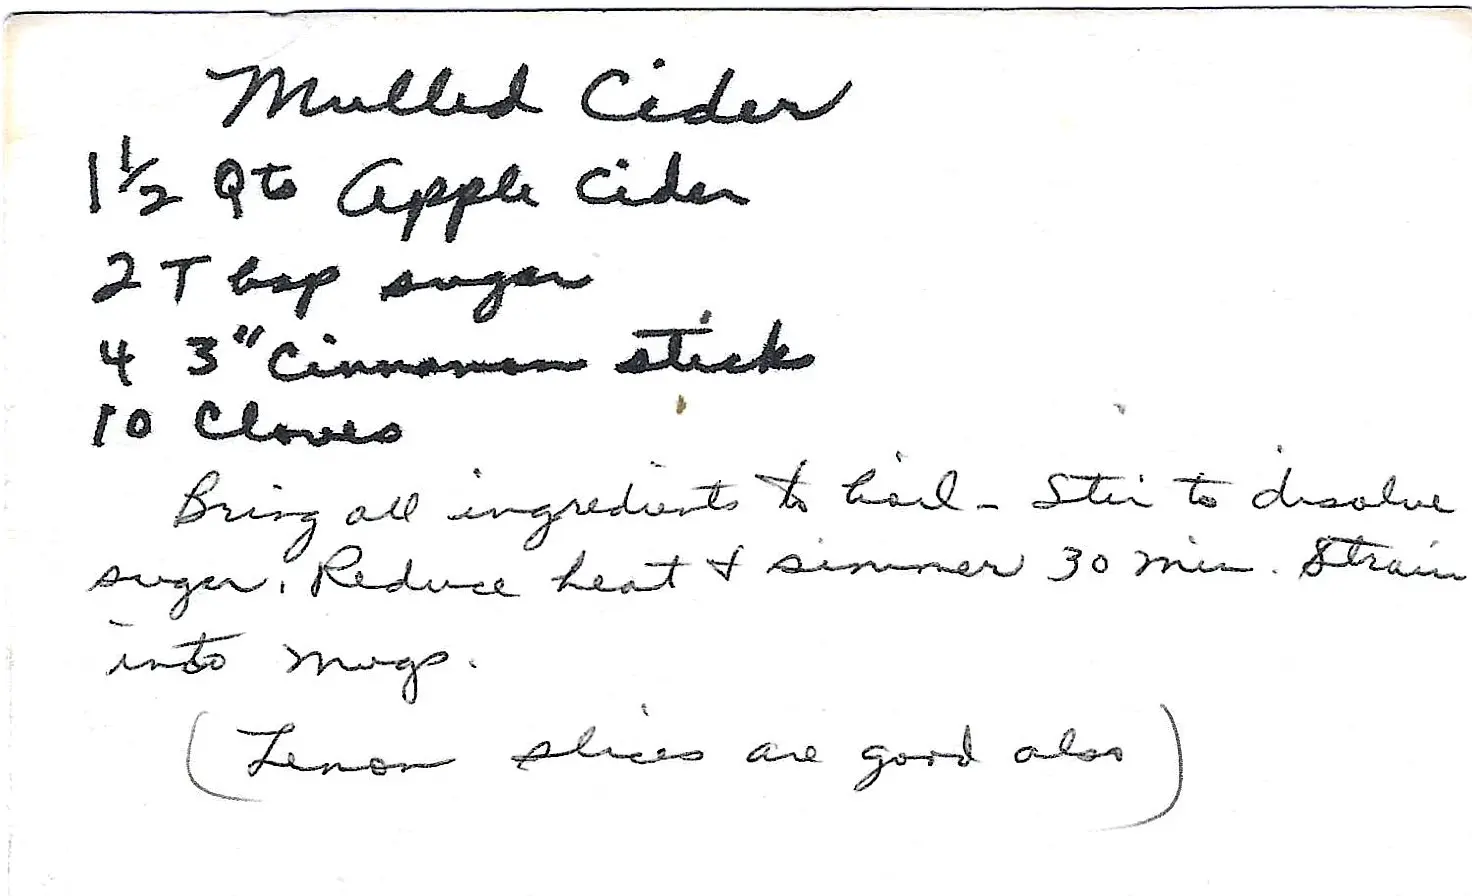 Mulled Cider
1 1/2 Qts Apple Cider
2 Tbsp sugar
4 3" Cinnamon sticks
10 Cloves
Bring all ingredients to boil - Stir to disolve
sugar. Reduce heat & simmer 30 min. Strain
into mugs.
(Lemon slices are good also)